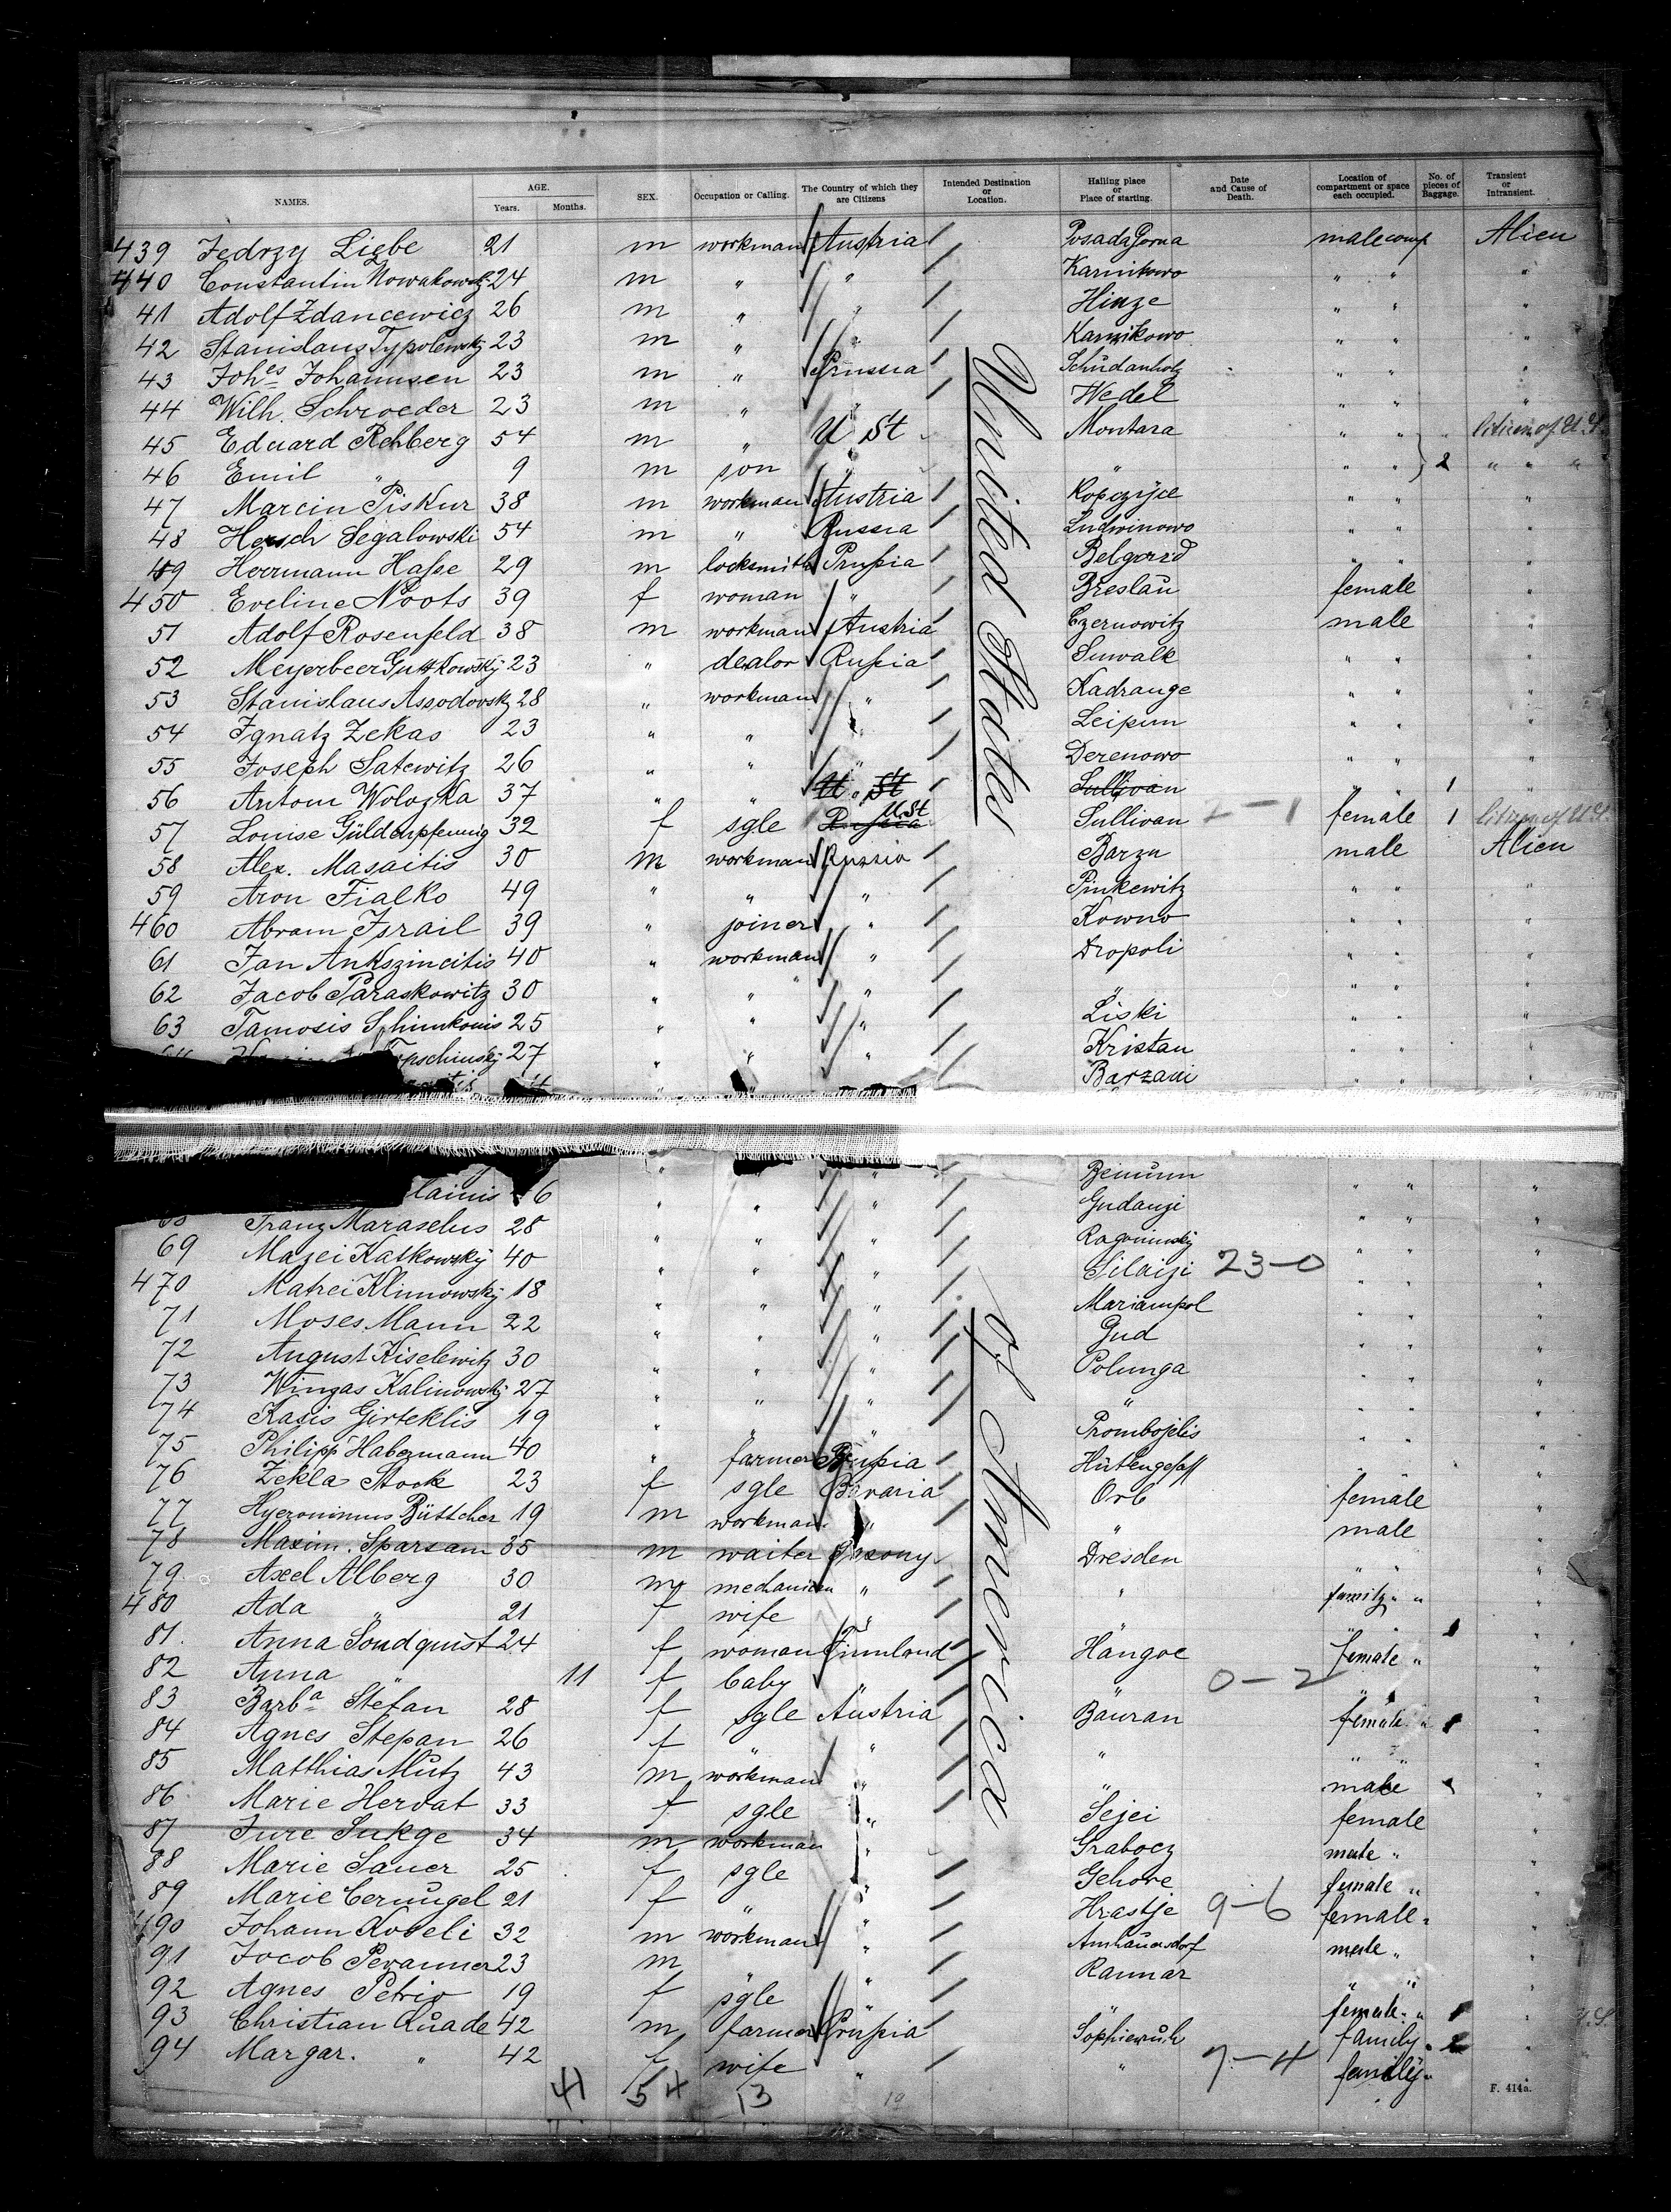 NAMES. AGE. Years. Months. SEX. Occupation or Calling. The Country of which they are Citizens Intended Destination or Location. Hailing place or Place of starting. Date and Cause of Death. Location of compartment or space each occupied. No. of pieces of Baggage. Transient or Intransient.
439 Jedrzy Liebe 21 m workman Austria Posada Gorna male comp Alien
440 Constantin Nowakowsky 24 m " " Karnikowo " " "
41 Adolf Zdancewicz 26 m " " Hinze " " "
42 Stanislaus Typolewsky 23 m " " Karnikowo " " "
43 Johes Johannsen 23 m " Prussia " " "
44 Wilh. Schroeder 23 m " " Wedel " " "
45 Eduard Rehberg 54 m " U St Montara " " Citizen of U.S.
46 Emil " 9 m son " " " " 2 " " "
47 Marcin Piskur 38 m workman Austria Kopczyce " " "
48 Hersch Segalowski 54 m " Russia Ludwinowo " " "
49 Herrmann Hasse 29 m locksmith Prussia Belgard " " "
450 Eveline Noots 39 f woman " Breslau female "
51 Adolf Rosenfeld 38 m workman Austria Czernowitz male "
52 Meyerbeer Guttkowsky 23 " dealer Russia Suwalk " " "
53 Stanislaus Assodovsky 28 " workman " Kadrange " " "
54 Ignatz Zekas 23 " " " Leipun " " "
55 Joseph Satewitz 26 " " " Derenowo " " "
56 Antom Wolozka 37 " " U. St Sullivan " " 1 "
57 Louise Güldenpfennig 32 f sgle Russia U.St Sullivan 2-1 female 1 Citizen of U.S.
58 Alex. Masaitis 30 m workman Russia Barzn male Alien
59 Aron Fialko 49 " " " Pinkewitz " " "
460 Abram Israil 39 " joiner " Kowno " " "
61 Jan Ankszincitis 40 " workman " Dropoli " " "
62 Jacob Paraskowitz 30 " " " " " " "
63 Tamosis Schimkonis 25 " " " Liski " " "
27 " " " Kristan " " "
" " Barzani " " "
United States
" " " " " "
lainis 6 " " " Gudanzi " " "
Franz Maraselus 28 " " " " " "
69 Mazei Katkowsky 40 " " " Silaizi 23-0 " " "
470 Matrei Klimowsky 18 " " " Mariampol " " "
71 Moses Mann 22 " " " Gud " " "
72 August Kiselewitz 30 " " " Polunga " " "
73 Wingas Kalinowsky 27 " " " " " " "
74 Kasis Girteklis 19 " " " Prombojelis " " "
75 Philipp Habermann 40 " farmer Prussia " " "
76 Zekla Stock 23 f sgle Bavaria Orb female "
77 Hyeronimus Büttcher 19 m workman " " male "
78 Maxim. Sparsam 35 m waiter Saxony Dresden " " "
79 Axel Alberg 30 m mechanican " " family " " "
480 Ada " 21 f wife " " " "
81 Anna Soudquist 24 f woman Finnland Hangoe female " 1 "
82 Anna " 11 f baby " " 0-2 " " "
83 Barba Stefan 28 f sgle Austria Bauran female " 1 "
84 Agnes Stepan 26 f " " " " " "
85 Matthias Mutz 43 m workman " " male 1 "
86 Marie Hervat 33 f sgle " Sejei female "
87 Jure Sukge 34 m workman " Grabocz male " "
88 Marie Sauer 25 f sgle " Gehove female " "
89 Marie Cerungel 21 f " " Hrastje 9-6 female " "
490 Johann Kobeli 32 m workman " male " "
91 Jocob Peranner 23 m " " Rannar " " "
92 Agnes Petrio 19 f sgle " female " 1 "
93 Christian Quade 42 m farmer Prussia Sophieruh family " 2 "
94 Margar. " 42 f wife " " 7-4 family " "
of America
41 54 13 19
F. 414a.